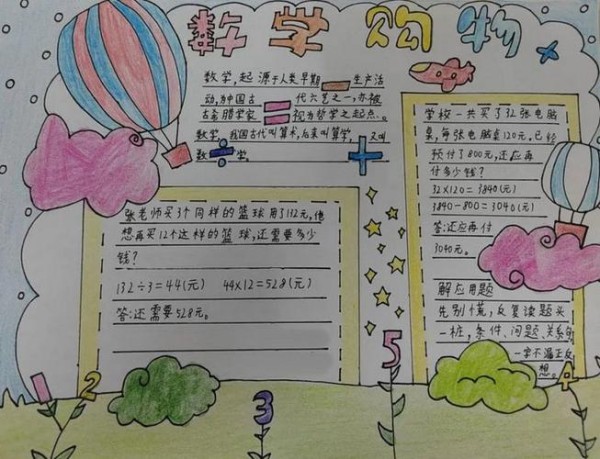 数学购物
数学,起源于人类早期生产活
动,为中国古代六艺之一,亦被
古希腊学家视为哲学之起点.
数学,我国古代叫算术,后来叫算学,又叫
数学。
张老师买3个同样的篮球用了132元,他
想再买12个这样的篮球,还需要多少
钱?
132÷3=44(元) 44×12=528(元)
答:还需要528元。
学校一共买了32张电脑
桌,每张电脑桌120元,已经
预付了800元,还应再
付多少钱?
32×120=3840(元)
3840-800=3040(元)
答:还应再付
3040元。
解应用题
先别慌,反复读题头
一桩,条件、问题、关系句
一字不漏正反
想。
1
2
3
5
4